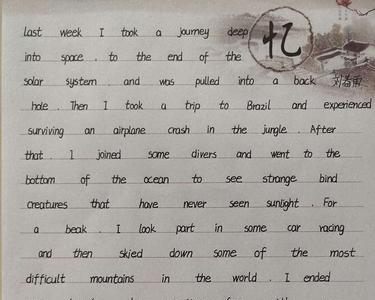 忆
last week I took a journey deep
into space . to the end of the
solar system . and was pulled into a back
hole . Then I took a trip to Brazil and experienced
surviving an airplane crash in the jungle . After
that . I joined some divers and went to the
bottom of the ocean to see strange bind
creatures that have never seen sunlight . For
a beak . I look part in some car racing
and then skied down some of the most
difficult mountains in the world . I ended